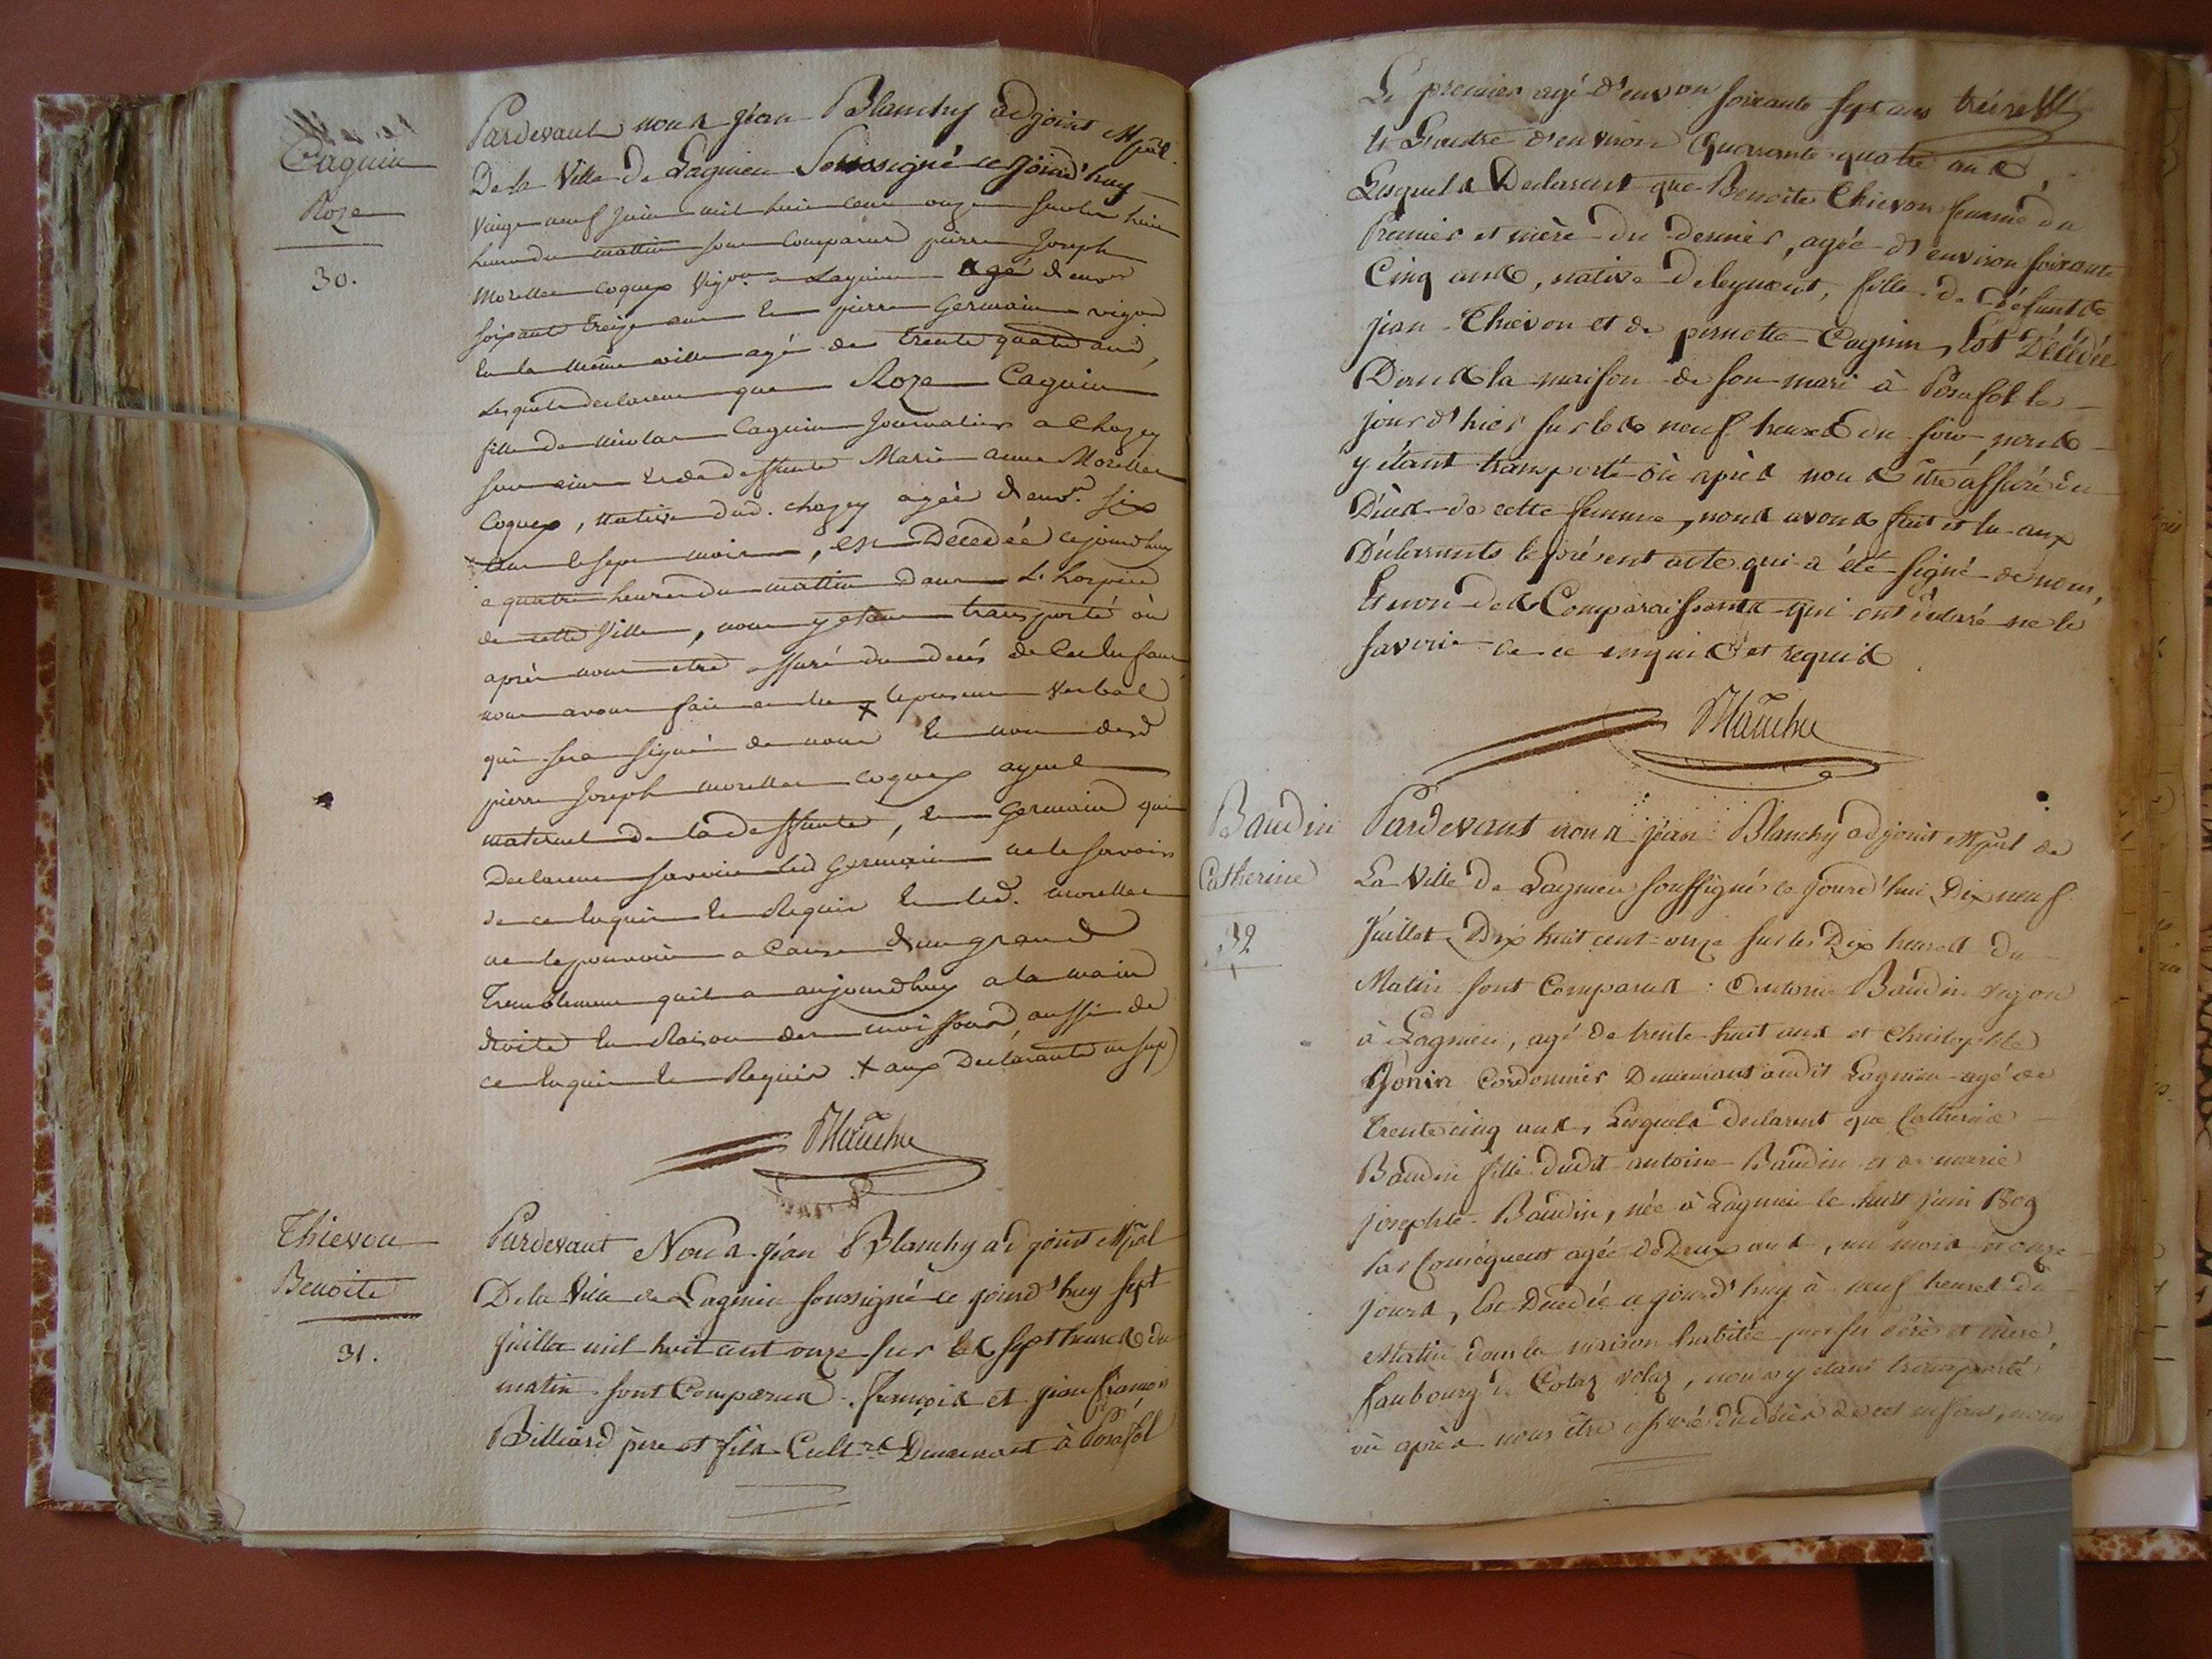 Caguin
Roze
30.
Pardevant nous jean Blanchy adjoint Mpal.
De la Ville de Lagnieu Soussigné ce jourd'huy
vingt neuf juin mil huit cent onze sur les huit
heures du mattin sont Comparus pierre Joseph
Morellet coquex vigon a Lagnieu agé d'envon
soixante treize ans et pierre Germain vigon
en la même ville agé de trente quatre ans,
Lesquels declarent que Roze Caguin
fille de nicolas Caguin Journalier a Chazey
sur ain et de deffunte Marie anne Morellet
Coquex, native dud. chazey agée d'env.on six
ans et sept mois, est Decedée cejourdhuy
a quatre heures du mattin dans L'hospice
de cette Ville, nous y etant transporté où
après nous etre assuré du decés de Cet enfant
nous avons fait et lu + le present Verbal
qui sera signé de nous et non desd
pierre Joseph morellet coquex ayeul
maternel de la deffunte, et Germain qui
Declarent savoir led Germain ne le savoir
de ce enquis et Requis et led. morellet
ne le pouvoir a Cause d'un grand
Tremblement qu'il a aujourdhuy a la main
droite en Raison des moissons, aussi de
ce enquis et Requis. + aux Declarants
Blanchy
Thievon
Benoite
31.
Pardevant Nous jean Blanchy adjoint Mpal
De la Ville de Lagnieu soussigné ce jourd'huy sept
juillet mil huit cent onze sur les sept heures du
matin sont Comparus françois et jean françois
Billiard père et fils Cult.rs Demeurant à Posafol
Le premier agé d'environ soixante sept ans
et L'autre d'environ quarante quatre ans,
Lesquels Declarent que Benoite Thievon femme du
premier et mère du dernier, agée d'environ soixante
Cinq ans, native de leyment, fille de défunts
jean Thievon et de pernette Caguin, est Décédée
Dans la maison de son mari à Posafol le
jour d'hier sur les neuf heures du soir, nous
y étant transporté où après nous être assuré du
Décès de cette femme, nous avons fait et lu aux
Déclarants le présent acte qui a été signé de nous,
Et non des Comparaissants qui ont déclaré ne le
savoir de ce enquis et requis.
Blanchy
Baudin
Catherine
32
Pardevant nous jean Blanchy adjoint Mpal de
La Ville de Lagnieu soussigné ce jourd'hui Dix neuf
juillet Dix huit cent onze sur les Dix heures du
Matin sont Comparus : Antoine Baudin vigon
à Lagnieu, agé de trente huit ans et Christophle
Jônin Cordonnier Demeurant audit Lagnieu agé de
trente cinq ans, Lesquels declarent que Catherine
Baudin fille dudit antoine Baudin et de marie
josephte Baudin, née à Lagnieu le huit juin 1809
par Conséquent agée de Deux ans, un mois et onze
jours, Est Decedée ce jourd'huy à neuf heures du
Matin dans la maison habitée par ses Père et mère,
faubourg de, nous y étant transporté
où après nous être assuré du décès de cet enfant, nous